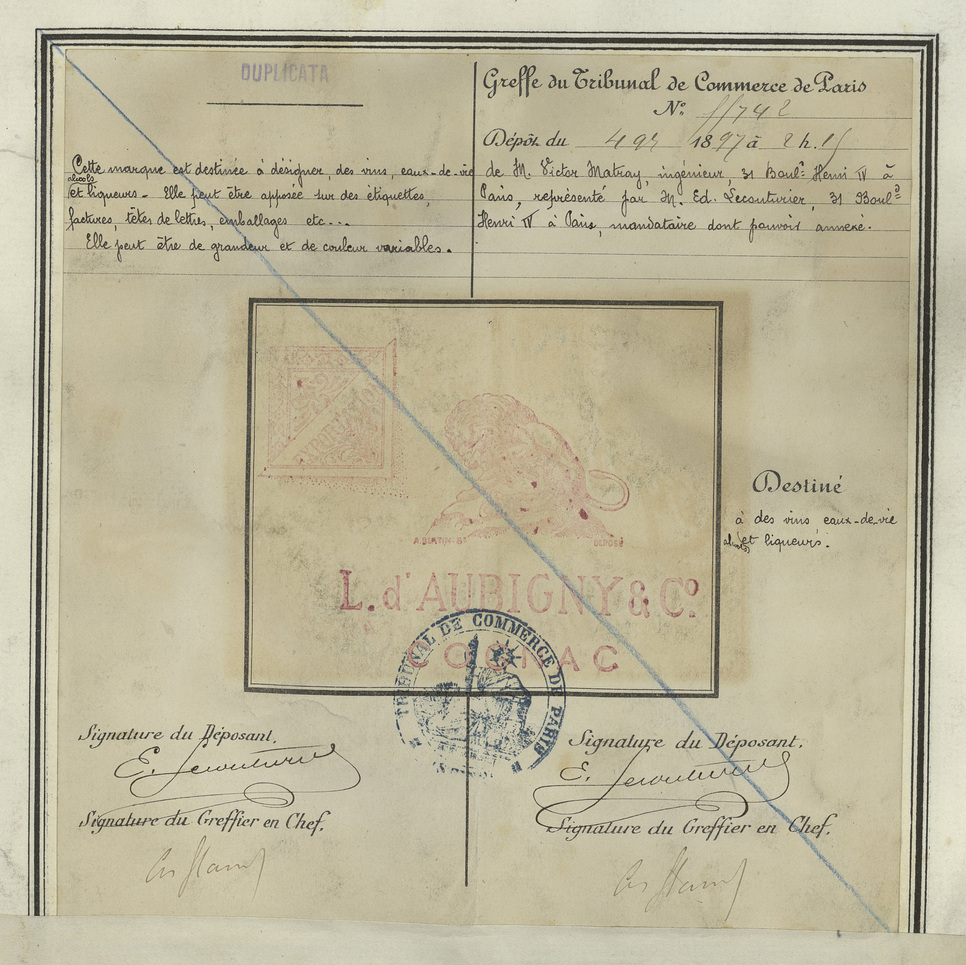 DUPLICATA
Cette marque est destinée à désigner, des vins, eaux-de-vie
alcools
et liqueurs - Elle peut être apposée sur des étiquettes,
factures, têtes de lettres, emballages etc...
Elle peut être de grandeur et de couleur variables.
Greffe du Tribunal de Commerce de Paris
No
Dépôt du 1897 à 2 h. 15
de M. Victor Matray, ingénieur, 31 Bould Henri IV à
Paris, représenté par M. Ed. Lecouturier, 31 Bould
Henri IV à Paris, mandataire dont pouvoir annexé.
DÉPOSÉ
L. d'AUBIGNY & Co.
COGNAC
Destiné
à des vins eaux-de-vie
alcools et liqueurs.
TRIBUNAL DE COMMERCE DE PARIS
Signature du Déposant.
E. Lecouturier
Signature du Greffier en Chef.
Signature du Déposant.
E. Lecouturier
Signature du Greffier en Chef.